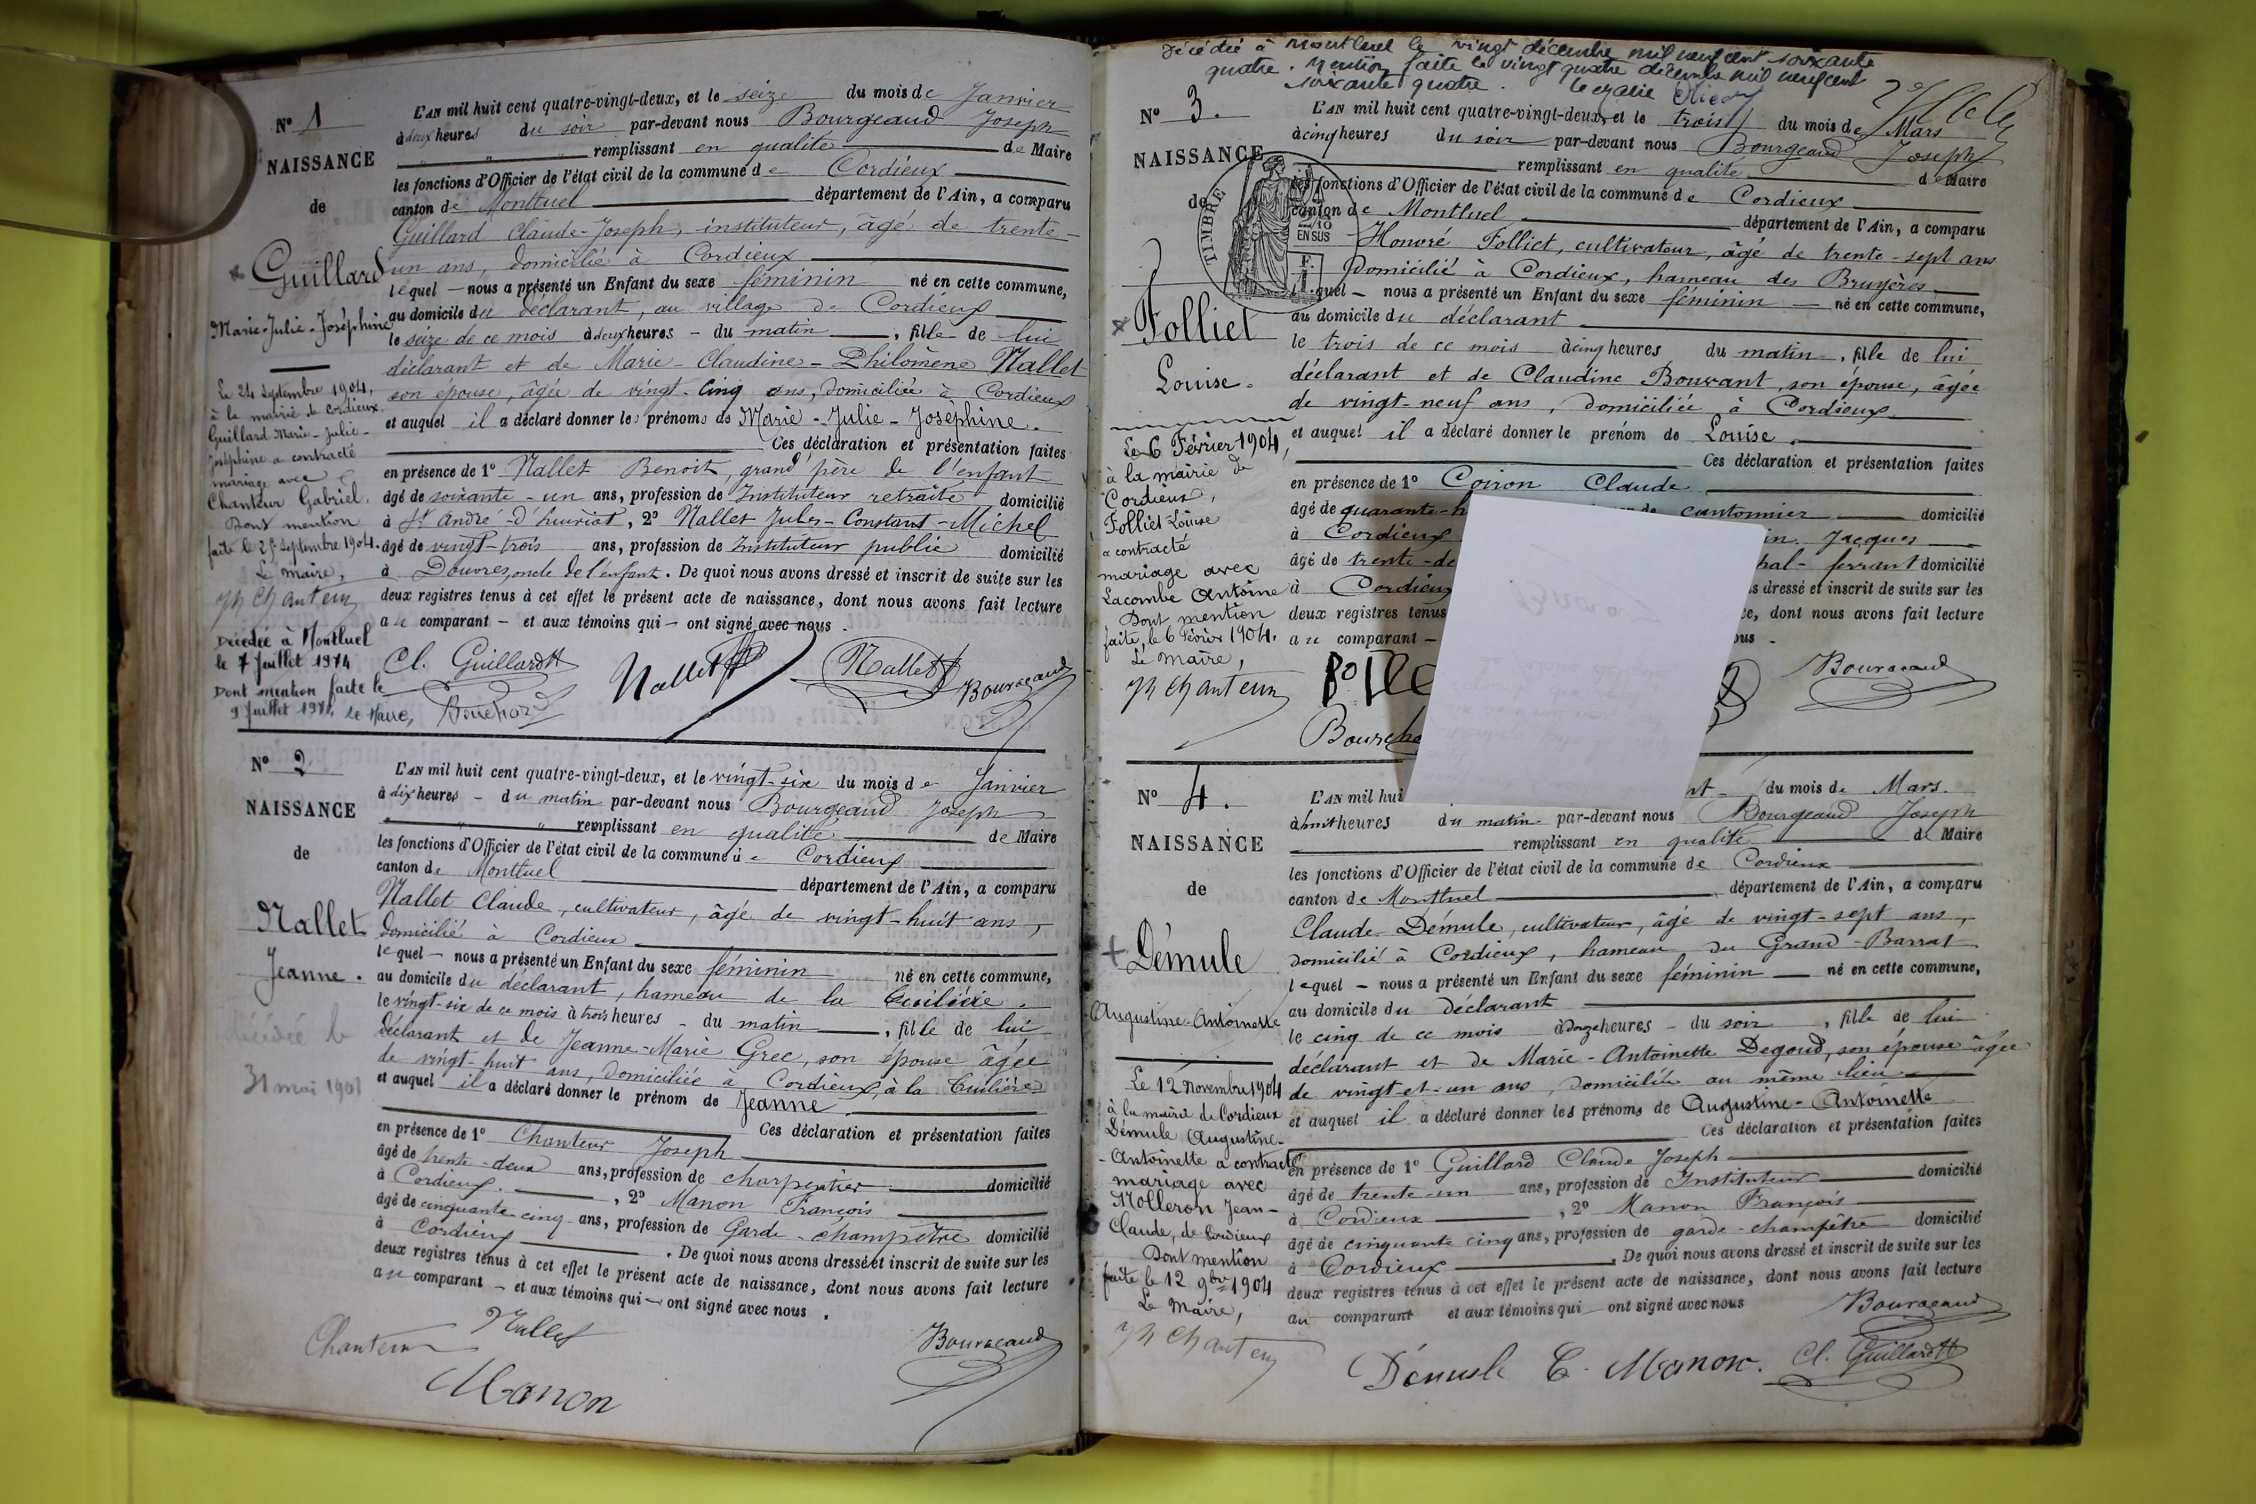 Nº 1
NAISSANCE
de
Guillard
Marie-Julie-Joséphine
Le 24 Septembre 1904,
à la mairie de Cordieux
Guillard Marie-Julie-
Joséphine a contracté
mariage avec
Chanteur Gabriel.
Dont mention
faite le septembre 1904.
Le Maire,
Jh Chanteur
Décédée à Montluel
le 7 Juillet 1974
Dont mention faite le
9 Juillet 1974. Le Maire,
L'AN mil huit cent quatre-vingt-deux, et le seize du mois de Janvier
à deux heures du soir par-devant nous Bourgeaud Joseph
remplissant en qualité de Maire
les fonctions d'Officier de l'état civil de la commune de Cordieux
canton de Montluel département de l'Ain, a comparu
Guillard Claude-Joseph, instituteur, âgé de trente-
un ans, domicilié à Cordieux
lequel — nous a présenté un Enfant du sexe féminin né en cette commune,
au domicile du déclarant, au village de Cordieux
le seize de ce mois à deux heures - du matin, fille de lui
déclarant et de Marie-Claudine-Philomène Nallet
son épouse, âgée de vingt-cinq ans, domiciliée à Cordieux
et auquel il a déclaré donner les prénoms de Marie-Julie-Joséphine.
Ces déclaration et présentation faites
en présence de 1º Nallet Benoit, grand père de l'enfant
âgé de soixante-un ans, profession de Instituteur retraité domicilié
à St André-d'huiriat, 2º Nallet Jules-Constant-Michel
âgé de vingt-trois ans, profession de Instituteur public domicilié
à Douvres, oncle de l'enfant. De quoi nous avons dressé et inscrit de suite sur les
deux registres tenus à cet effet le présent acte de naissance, dont nous avons fait lecture
au comparant — et aux témoins qui — ont signé avec nous.
Cl. Guillard Nallet Nallet Bourgeaud
Nº 2
NAISSANCE
de
Nallet
Jeanne.
décédée le
31 mai 1901
L'AN mil huit cent quatre-vingt-deux, et le vingt-six du mois de Janvier
à dix heures - du matin par-devant nous Bourgeaud Joseph
remplissant en qualité de Maire
les fonctions d'Officier de l'état civil de la commune de Cordieux
canton de Montluel département de l'Ain, a comparu
Nallet Claude, cultivateur, âgé de vingt-huit ans,
domicilié à Cordieux
lequel — nous a présenté un Enfant du sexe féminin né en cette commune,
au domicile du déclarant, hameau de la
le vingt-six de ce mois à trois heures - du matin, fille de lui
déclarant et de Jeanne-Marie Grec, son épouse âgée
de vingt-huit ans, domiciliée à Cordieux, à la
et auquel il a déclaré donner le prénom de Jeanne
Ces déclaration et présentation faites
en présence de 1º Chanteur Joseph
âgé de trente-deux ans, profession de charpentier domicilié
à Cordieux, 2º Manon François
âgé de cinquante cinq ans, profession de Garde-champêtre domicilié
à Cordieux. De quoi nous avons dressé et inscrit de suite sur les
deux registres tenus à cet effet le présent acte de naissance, dont nous avons fait lecture
au comparant — et aux témoins qui — ont signé avec nous.
Chanteur Nallet Bourgeaud
Manon
Décédée à Montluel le vingt décembre mil neuf cent soixante
quatre. Mention faite le vingt quatre décembre mil neuf cent
soixante quatre. Le Maire
Nº 3.
NAISSANCE
de
TIMBRE
2/10
EN SUS
Folliet
Louise.
Le 6 Février 1904,
à la mairie de
Cordieux,
Folliet Louise
a contracté
mariage avec
Lacombe Antoine
Dont mention
faite, le 6 Février 1904.
Le maire,
Jh Chanteur
L'AN mil huit cent quatre-vingt-deux, et le trois du mois de Mars
à cinq heures du soir par-devant nous Bourgeaud Joseph
remplissant en qualité de Maire
les fonctions d'Officier de l'état civil de la commune de Cordieux
canton de Montluel département de l'Ain, a comparu
Honoré Folliet, cultivateur, âgé de trente-sept ans
domicilié à Cordieux, hameau des Bruyères
lequel — nous a présenté un Enfant du sexe féminin — né en cette commune,
au domicile du déclarant
le trois de ce mois à cinq heures du matin, fille de lui
déclarant et de Claudine Bouvant, son épouse, âgée
de vingt-neuf ans, domiciliée à Cordieux
et auquel il a déclaré donner le prénom de Louise.
Ces déclaration et présentation faites
en présence de 1º Coiron Claude
âgé de quarante-h cantonnier domicilié
à Cordieux Jacques
âgé de trente-de hal-ferrant domicilié
à Cordieux s dressé et inscrit de suite sur les
deux registres tenus ce, dont nous avons fait lecture
au comparant — ous.
Bourgeaud
Nº 4.
NAISSANCE
de
Démule
Augustine-Antoinette
Le 12 Novembre 1904
à la mairie de Cordieux
Démule Augustine-
Antoinette a contracté
mariage avec
Molleron Jean-
Claude, de Cordieux
Dont mention
faite le 12 9bre 1904
Le Maire,
Jh Chanteur
L'AN mil hui du mois de Mars.
à huit heures du matin par-devant nous Bourgeaud Joseph
remplissant en qualité de Maire
les fonctions d'Officier de l'état civil de la commune de Cordieux
canton de Montluel département de l'Ain, a comparu
Claude Démule, cultivateur, âgé de vingt-sept ans,
domicilié à Cordieux, hameau du Grand-Barrat
lequel — nous a présenté un Enfant du sexe féminin — né en cette commune,
au domicile du déclarant
le cinq de ce mois à douze heures - du soir, fille de lui
déclarant et de Marie-Antoinette Degoud, son épouse âgée
de vingt-et-un ans, domiciliée au même lieu
et auquel il a déclaré donner les prénoms de Augustine-Antoinette
Ces déclaration et présentation faites
en présence de 1º Guillard Claude Joseph
âgé de trente un ans, profession de Instituteur domicilié
à Cordieux, 2º Manon François
âgé de cinquante cinq ans, profession de garde-champêtre domicilié
à Cordieux. De quoi nous avons dressé et inscrit de suite sur les
deux registres tenus à cet effet le présent acte de naissance, dont nous avons fait lecture
au comparant et aux témoins qui — ont signé avec nous
Bourgeaud
Démule C. Manon. Cl. Guillard